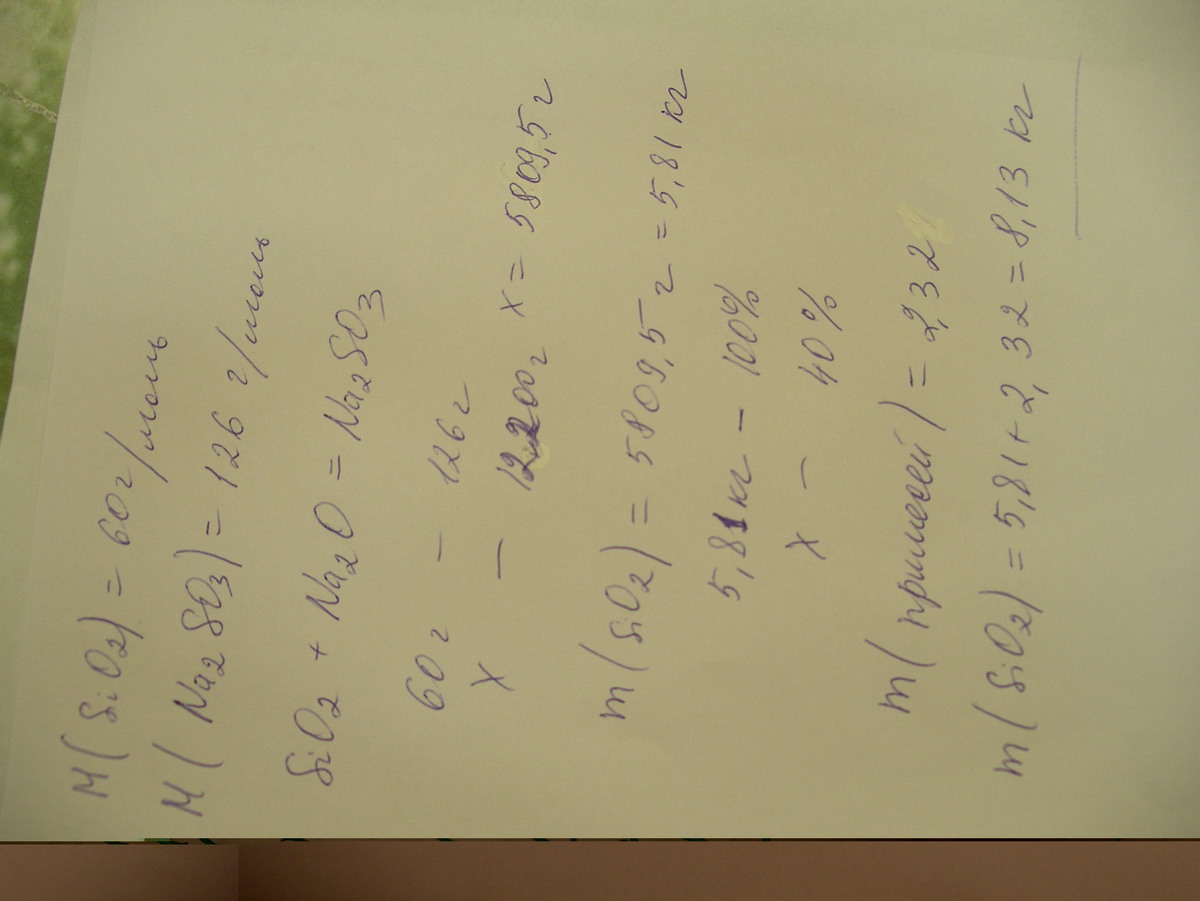 M(SiO2) = 60 г/моль
M(Na2SO3) = 126 г/моль
SiO2 + Na2O = Na2SO3
60 г – 126 г
x – 12200 г x = 5809,5 г
m(SiO2) = 5809,5 г = 5,81 кг
5,81 кг – 100%
x – 40%
m(примесей) = 2,32
m(SiO2) = 5,81 + 2,32 = 8,13 кг